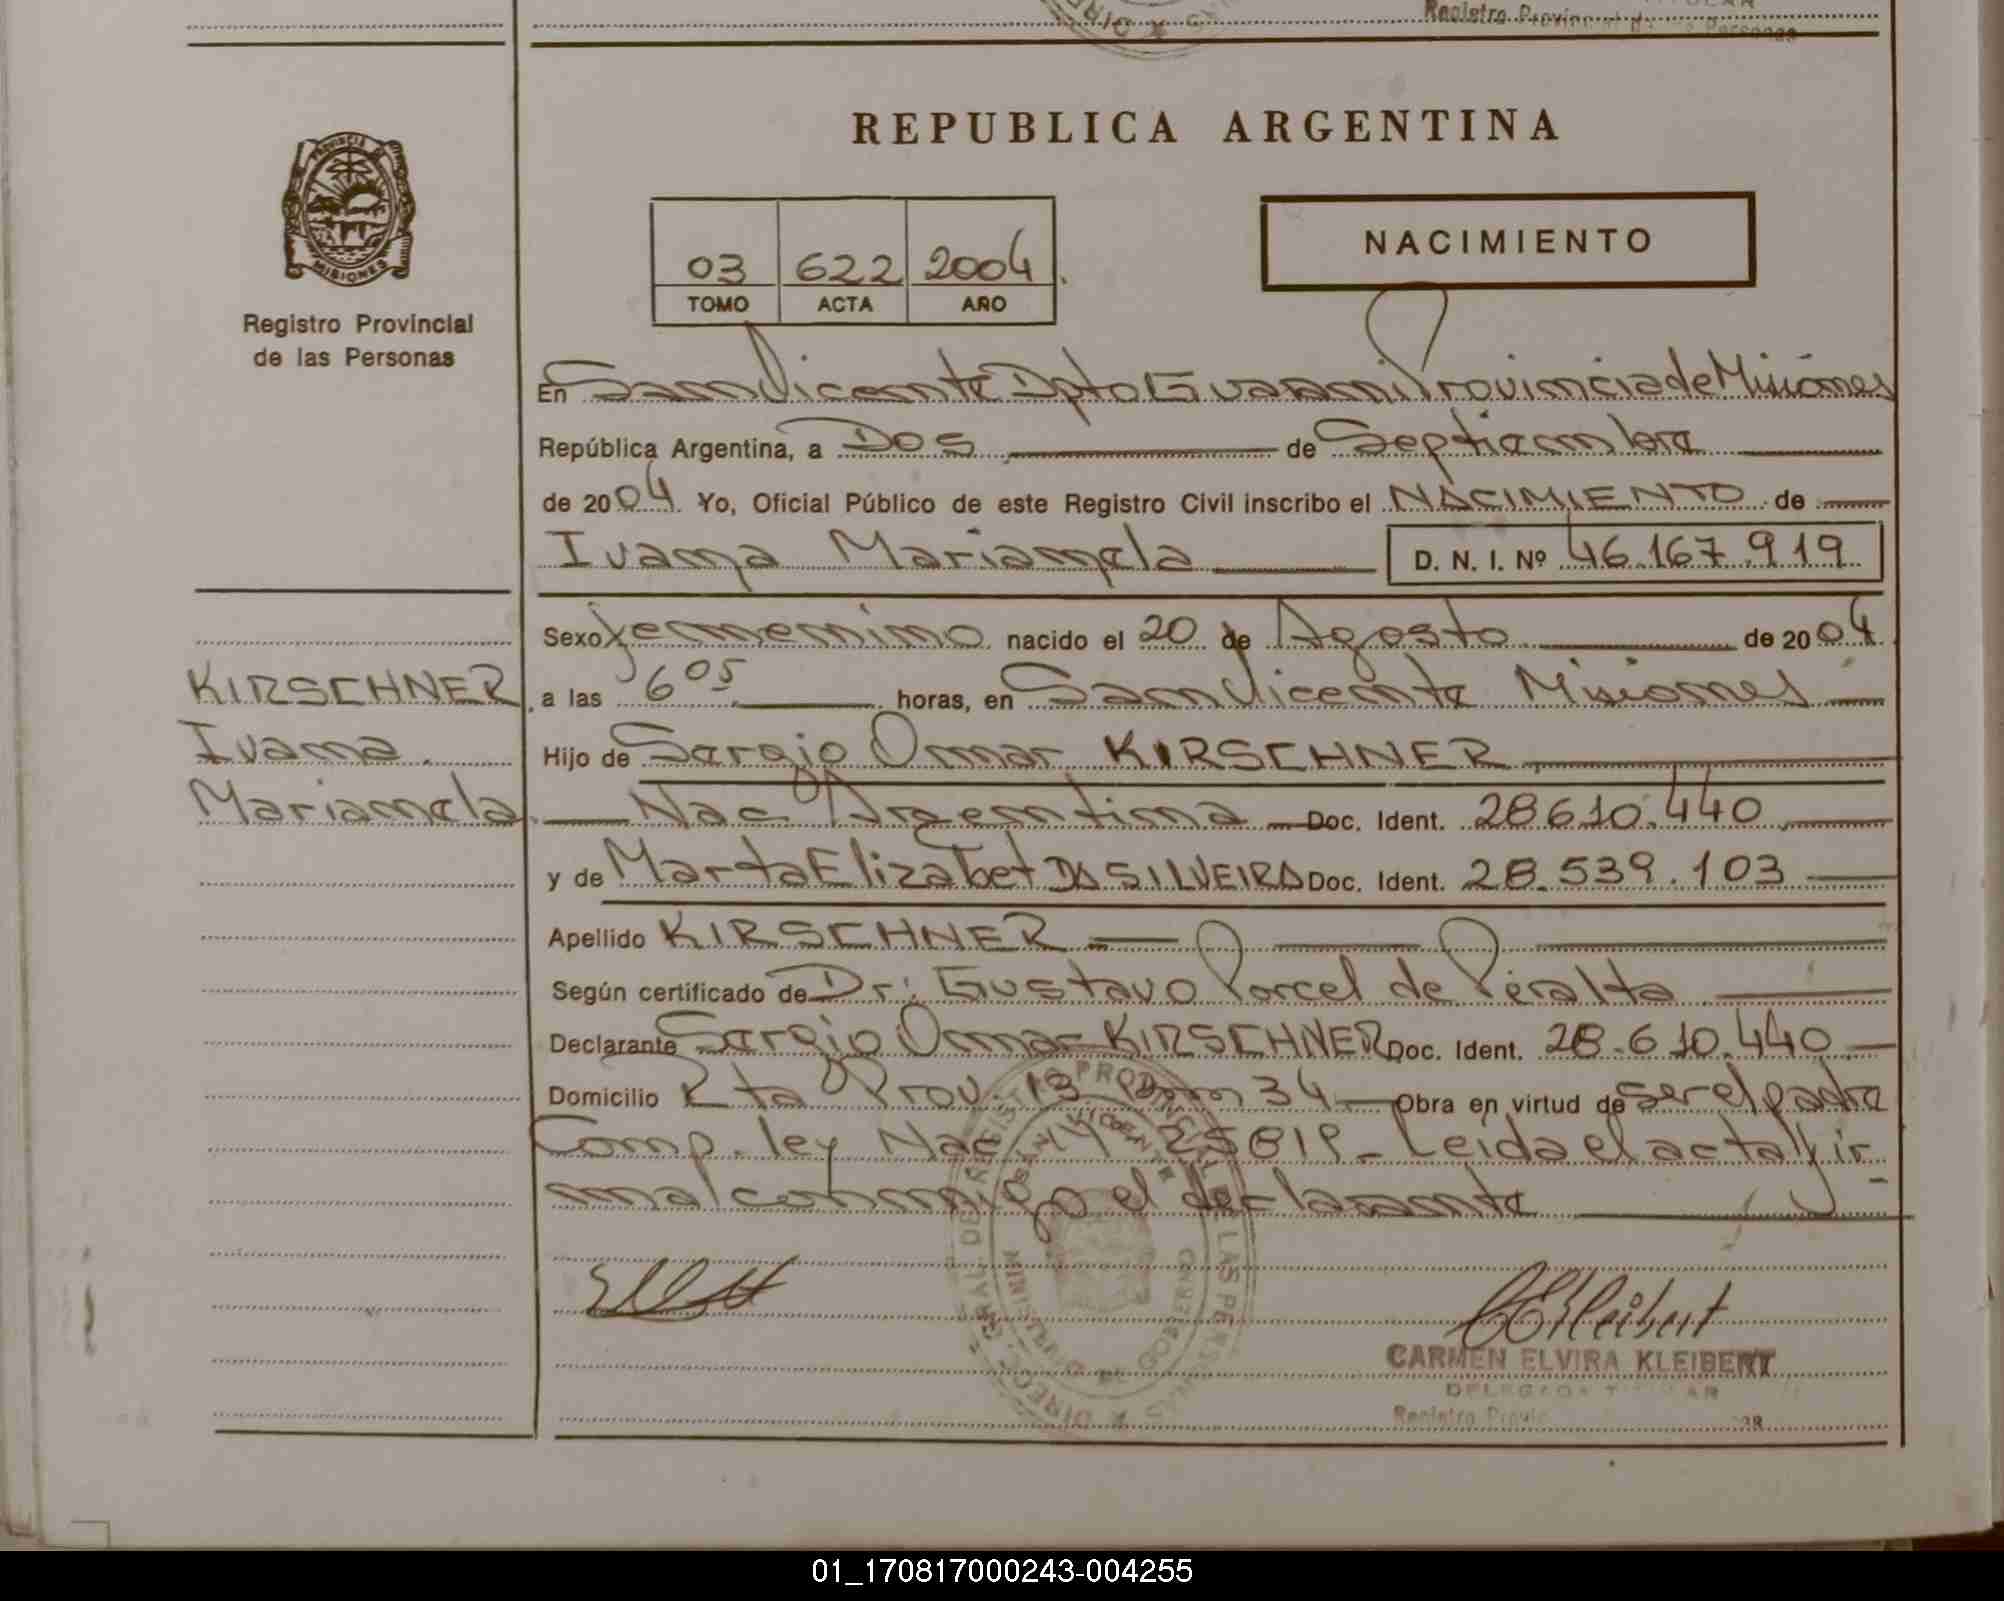 Registro Provincial de las Personas
REPUBLICA ARGENTINA
PROVINCIA DE
MISIONES
Registro Provincial
de las Personas
03 622 2004
TOMO ACTA AÑO
NACIMIENTO
En San Vicente Dpto Guarani Provincia de Misiones
República Argentina, a Dos de Septiembre
de 2004 Yo, Oficial Público de este Registro Civil inscribo el NACIMIENTO de
Ivana Marianela D. N. I. Nº 46.167.919
Sexo femenino nacido el 20 de Agosto de 2004
KIRSCHNER
a las 6 05 horas, en San Vicente Misiones
Ivana
Hijo de Sergio Omar KIRSCHNER
Marianela
Nac Argentina Doc. Ident. 28610.440
y de Marta Elizabet DA SILVEIRA Doc. Ident. 28.539.103
Apellido KIRSCHNER
Según certificado de Dr: Gustavo Porcel de Peralta
Declarante Sergio Omar KIRSCHNER Doc. Ident. 28.610.440
Domicilio Rta Prov. 13 34 Obra en virtud de ser el padre
Comp. ley Nac Leida el acta fir
ma conmigo el declarante
CEKleibert
CARMEN ELVIRA KLEIBERT
DELEGADA TITULAR
Registro
01_170817000243-004255